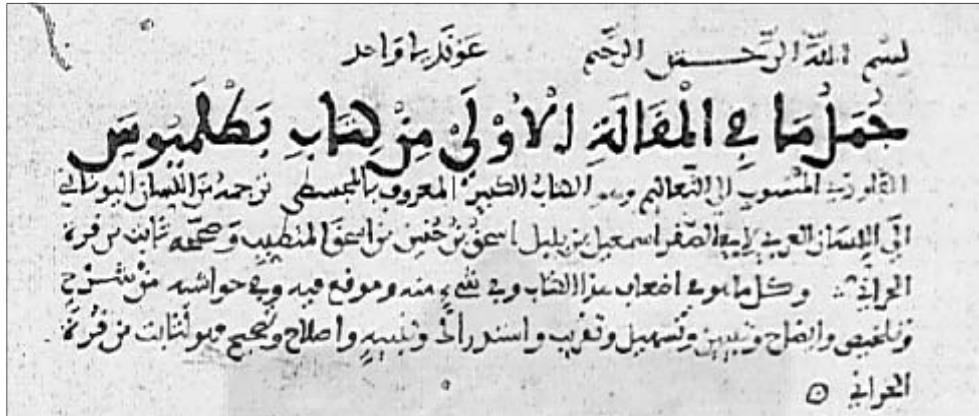 بسم الله الرحمن الرحيم عونك يا واحد
جُمَلُ مَا فِي الْمَقَالَةِ الْأُوْلَى مِنْ كِتَابِ بَطْلَمْيُوسَ
القلوذي المنسوب الى التعاليم وهو الكتاب الكبير المعروف بالمجسطي ترجمه من اللسان اليوناني
الى اللسان العربي لابي الصقر اسمعيل بن بلبل اسحق بن حُنين بن اسحق المتطبب وصححه ثابت بن قرة
الحراني وكل ما هو في اضعاف هذا الكتاب وفي شيء منه وموقع فيه وفي حواشيه من شرح
وتلخيص وايضاح وتبيين وتسهيل وتقريب واستدراك وتنبيه واصلاح وتصحيح فهو لثابت بن قرة
الحراني